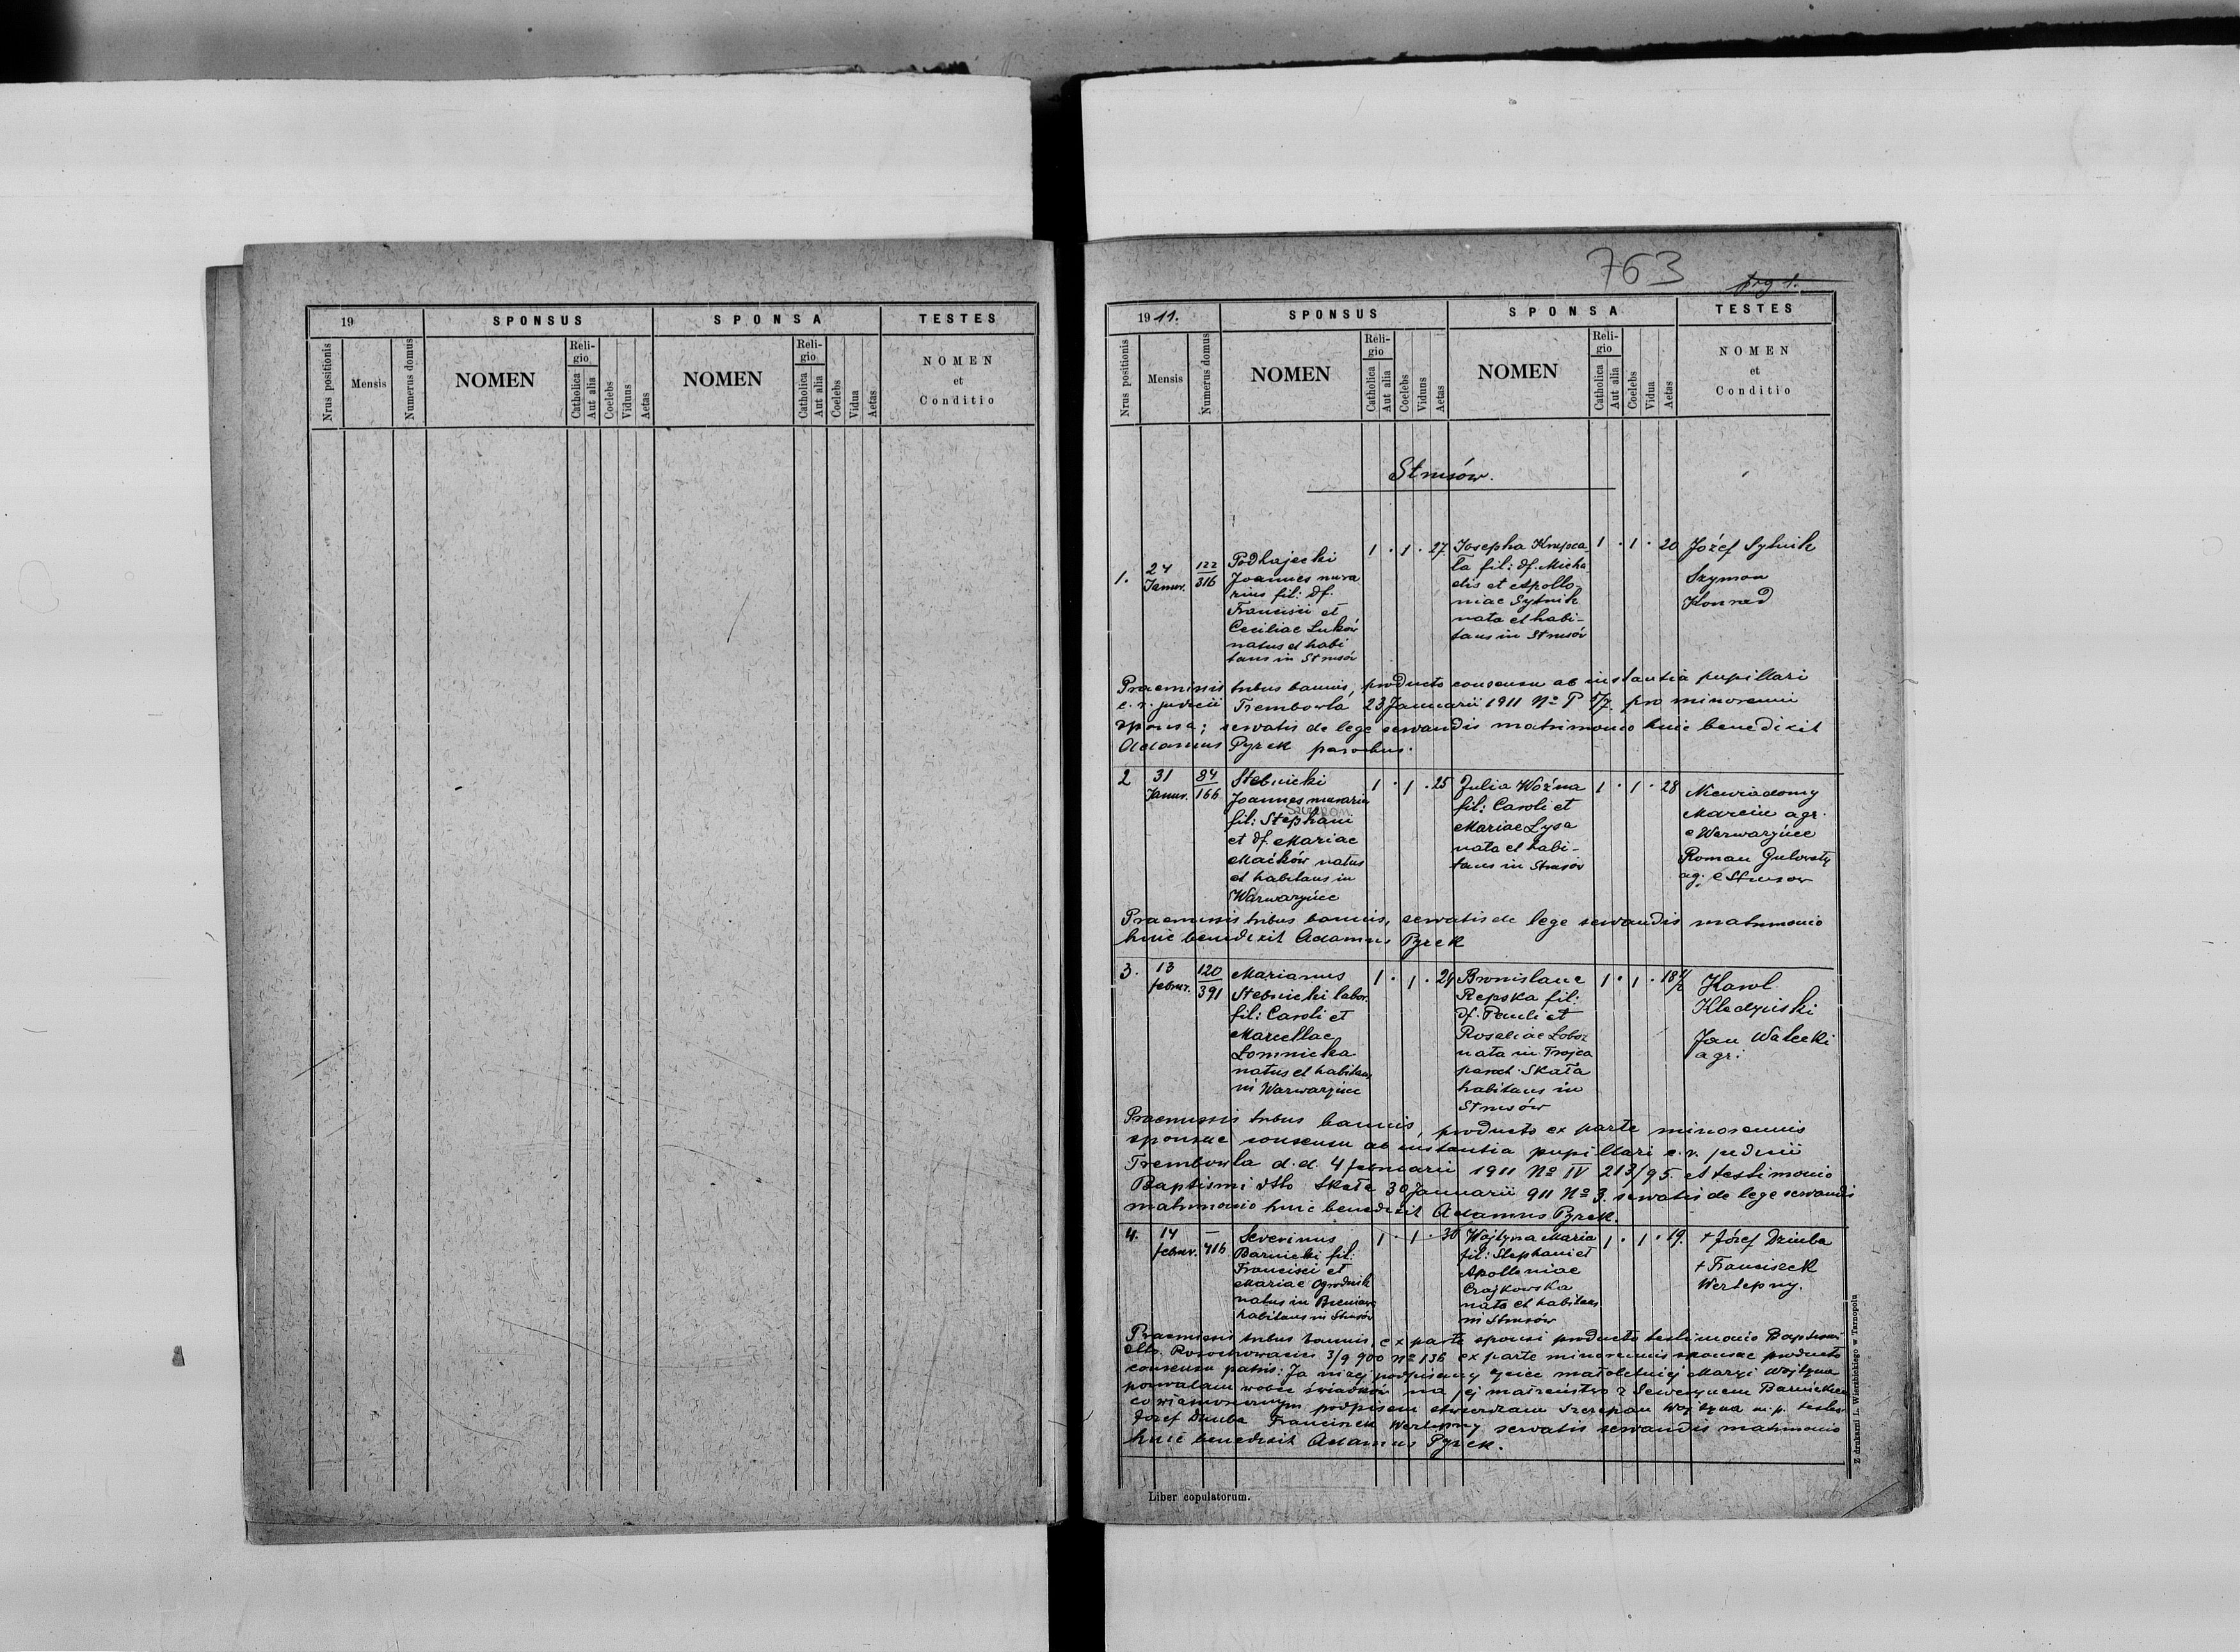 19
SPONSUS
SPONSA
TESTES
Nrus positionis
Mensis
Numerus domus
NOMEN
Reli-
gio
Catholica
Aut alia
Coelebs
Viduus
Aetas
NOMEN
Reli-
gio
Catholica
Aut alia
Coelebs
Vidua
Aetas
NOMEN
et
Conditio
763
pag 1.
1911.
SPONSUS
SPONSA
TESTES
Nrus positionis
Mensis
Numerus domus
NOMEN
Reli-
gio
Catholica
Aut alia
Coelebs
Viduus
Aetas
NOMEN
Reli-
gio
Catholica
Aut alia
Coelebs
Vidua
Aetas
NOMEN
et
Conditio
Strusów.
1.
24
Januar.
122
316
Podhajecki
Joannes mura
rius fil: df.
Francisci et
Ceciliae Luków
natus et habi
tans in Strusów
1 . 1 . 27.
Josepha Krupca
ła fil: df. Micha
elis et Apollo-
niae Sytnik
nata et habi-
tans in Strusów
1 . 1 . 20
Józef Sytnik
Szymon
Konrad
Praemissis tribus bannis, producto consensu ab instantia pupillari
c. r. judicii Trembowla 23 Januarii 1911 No P pro minorenni
sponsa; servatis de lege servandis matrimonio huic benedixit
Adamus Pyrek parochus.
2
31
Januar.
84
166
Stebnicki
Joannes murariu
fil: Stephani
et df. Mariae
Maćków natus
et habitans in
Warwaryńce
1 . 1 . 25
Julia Woźna
fil: Caroli et
Mariae Lysa
nata et habi-
tans in Strusów
1 . 1 . 28
Niewiadomy
Marcin agr.
e Warwaryńce
Roman Gulowaty
ag. e Strusow
Praemissis tribus bannis, servatis de lege servandis matrimonio
huic benedixit Adamus Pyrek
3.
13
februar.
120
391
Marianus
Stebnicki labor.
fil: Caroli et
Marcellae
Łomnicka
natus et habitans
in Warwaryńce
1 . 1 . 24
Bronislaue
Repska fil:
df. Pauli et
Rosaliae Łoboz
nata in Trojca
paroch. Skała
habitans in
Strusów
1 . 1 . 18 1/2
Karol
Kladyński
Jan Wałecki
agr:
Praemissis tribus bannis, producto ex parte minorennis
sponsae consensu ab instantia pupillari c. r. judicii
Trembowla d. d. 4 februarii 1911 No IV 213/95. et testimonio
Baptismi dto Skała 30 Januarii 911 No 3. servatis de lege servandis
matrimonio huic benedixit Adamus Pyrek.
4.
14
februar.
–
416
Severinus
Barnicki fil:
Francisci et
Mariae Ogrodnik
natus in
habitans in Strusów
1 . 1 . 30
Wojtyna Maria
fil: Stephani et
Apolloniae
Czajkowska
nata et habitans
in Strusów
1 . 1 . 19.
+ Józef Dziuba
+ Franciszek
Wertepny.
Praemissis tribus bannis, ex parte sponsi producto testimonio Baptismi
dto. Rosochowaciec 3/9 900 No 136 ex parte minorennis sponsae producto
consensu patris: Ja niżej podpisany ojciec małoletniej Maryi Wojtyna
pozwalam wobec świadków na jej małżeństwo z Sewerynem Barnickim
co własnoręcznym podpisem stwierdzam Szczepan Wojtyna m. p. testes
Józef Dziuba Franciszek Wertepny servatis servandis matrimonio
huic benedixit Adamus Pyrek.
Liber copulatorum.
Z drukarni L. Wierzbickiego w Tarnopolu